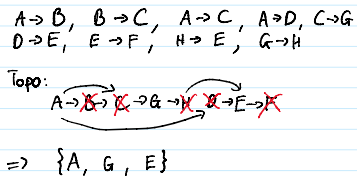 A → B, B → C, A → C, A → D, C → G
D → E, E → F, H → E, G → H
Topo:
A → B → C → G → H D → E → F
=> {A, G, E}